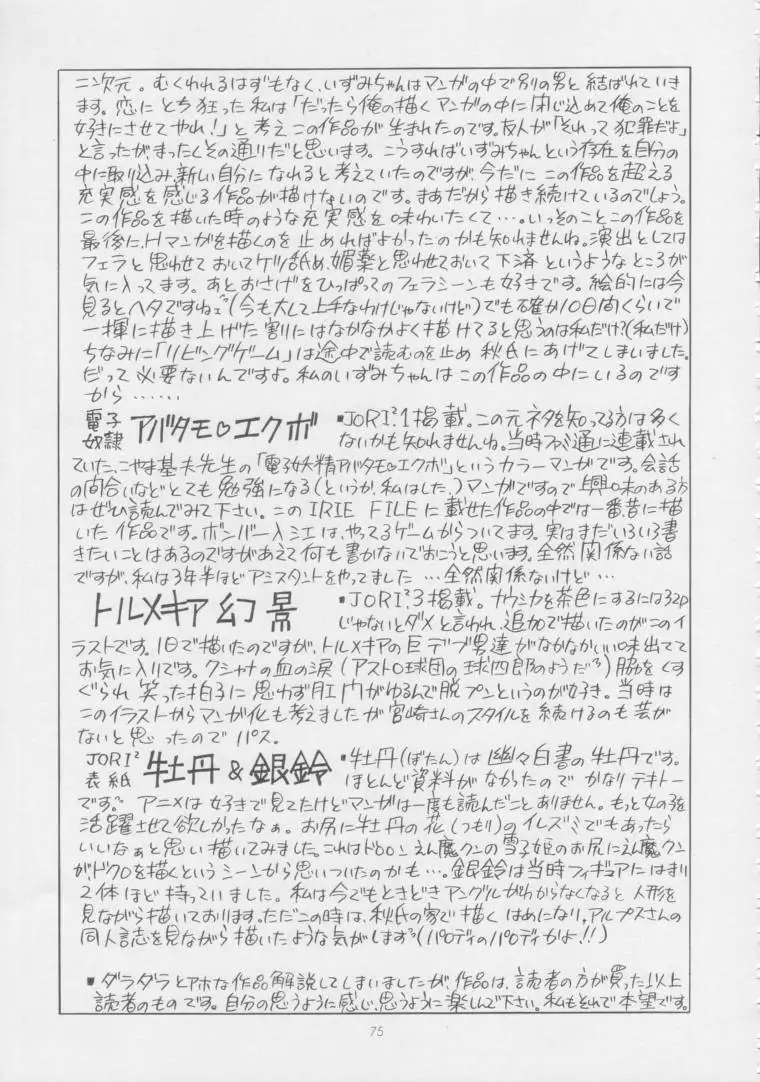 二次元。むくわれるはずもなく、いずみちゃんはマンガの中で別の男と結ばれていき
ます。恋にとち狂った私は「だったら俺の描くマンガの中に閉じ込めて俺のことを
好きにさせてやれ！」と考えこの作品が生まれたのです。友人が「それって犯罪だよ」
と言ったが、まったくその通りだと思います。こうすればいずみちゃんという存在を自分の
中に取り込み、新しい自分になれると考えていたのですが、今だにこの作品を超える
充実感を感じる作品が描けないのです。まあだから描き続けているのでしょう。
この作品を描いた時のような充実感を味わいたくて…。いっそのことこの作品を
最後に、Hマンガを描くのを止めればよかったのかも知れませんね。演出としては
フェラと思わせておいてケツ舐め、媚薬と思わせておいて下済というようなところが
気に入ってます。あとおさげをひっぱってのフェラシーンも好きです。絵的には今
見るとヘタですねェ（今も大して上手なわけじゃないけど）でも確か10日間くらいで
一揮に描き上げた割にはなかなかよく描けてると思うのは私だけ？（私だけ）
ちなみに「リビングゲーム」は途中で読むのを止め秋氏にあげてしまいました。
だって必要ないんですよ。私のいずみちゃんはこの作品の中にいるのです
から……
電子奴隷 アバタモ♡エクボ ▪JORI²1掲載。この元ネタを知ってる方は多く
ないかも知れませんね。当時ファミ通に連載され
ていた、こやま基夫先生の「電子妖精アバタモ♡エクボ」というカラーマンガです。会話
の間合いなどとても勉強になる（というか、私はした。）マンガですので興味のある方
はぜひ読んでみて下さい。このIRIE FILEに載せた作品の中では一番昔に描
いた作品です。ボンバー入江は、やってるゲームからついてます。実はまだいろいろ書
きたいことはあるのですがあえて何も書かないでおこうと思います。全然関係ない話
ですが、私は3年半ほどアシスタントをやってました…全然関係ないけど…
トルメキア幻景 ▪JORI²3掲載。ナウシカを茶色にするには32p
じゃないとダメと言われ、追加で描いたのがこのイ
ラストです。1日で描いたのですが、トルメキアの巨デブ男達がなかなかいい味出てて
お気に入りです。クシャナの血の涙（アストロ球団の球四郎のようだ）脇をくす
ぐられ笑った拍子に思わず肛門がゆるんで脱プンというのが好き。当時は
このイラストからマンガ化も考えましたが宮崎さんのスタイルを続けるのも芸が
ないと思ったのでパス。
JORI²表紙 牡丹&銀鈴 ▪牡丹（ぼたん）は幽々白書の牡丹です。
ほとんど資料がなかったのでかなりテキトー
です。アニメは好きで見てたけどマンガは一度も読んだことありません。もっと女の子を
活躍させて欲しかったなぁ。お尻に牡丹の花（つもり）のイレズミでもあったら
いいなぁと思い描いてみました。これはドロロンえん魔クンの雪子姫のお尻にえん魔クン
が、ドクロを描くというシーンから思いついたのかも…。銀鈴は当時フィギュアにはまり
2体ほど持っていました。私は今でもときどきアングルがわからなくなると人形を
見ながら描いております。ただこの時は、秋氏の家で描くはめになり、アルプスさんの
同人誌を見ながら描いたような気がします（パロディのパロディかよ！！）
▪ダラダラとアホな作品解説してしまいましたが、作品は、読者の方が買った以上
読者のものです。自分の思うように感じ、思うように楽しんで下さい。私もそれで本望です。
75